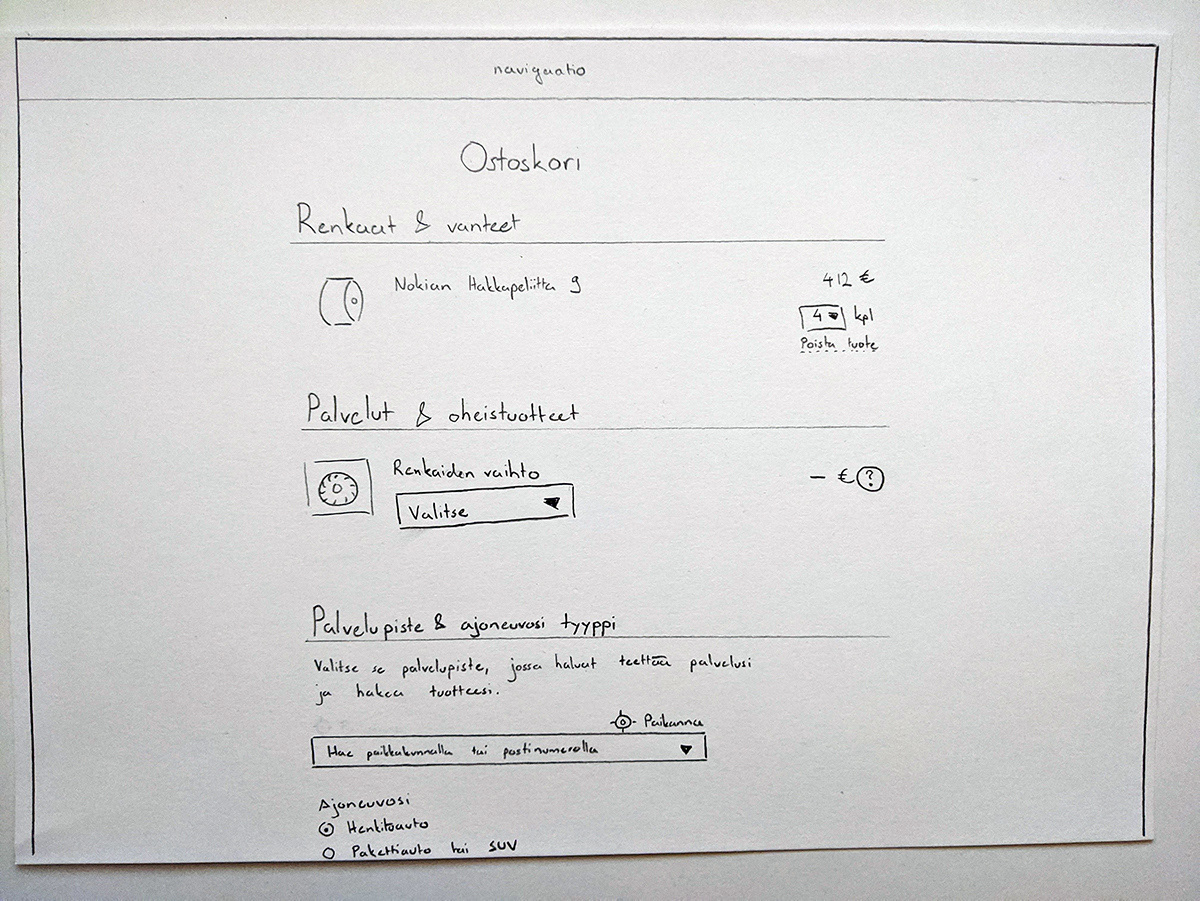 navigaatio
Ostoskori
Renkaat & vanteet
Nokian Hakkapeliitta 9
412 €
4 kpl
Poista tuote
Palvelut & oheistuotteet
Renkaiden vaihto
– € ?
Valitse
Palvelupiste & ajoneuvosi tyyppi
Valitse se palvelupiste, jossa haluat teettää palvelusi
ja hakea tuotteesi.
Paikanna
Hae paikkakunnalla tai postinumerolla
Ajoneuvosi
Henkilöauto
Pakettiauto tai SUV